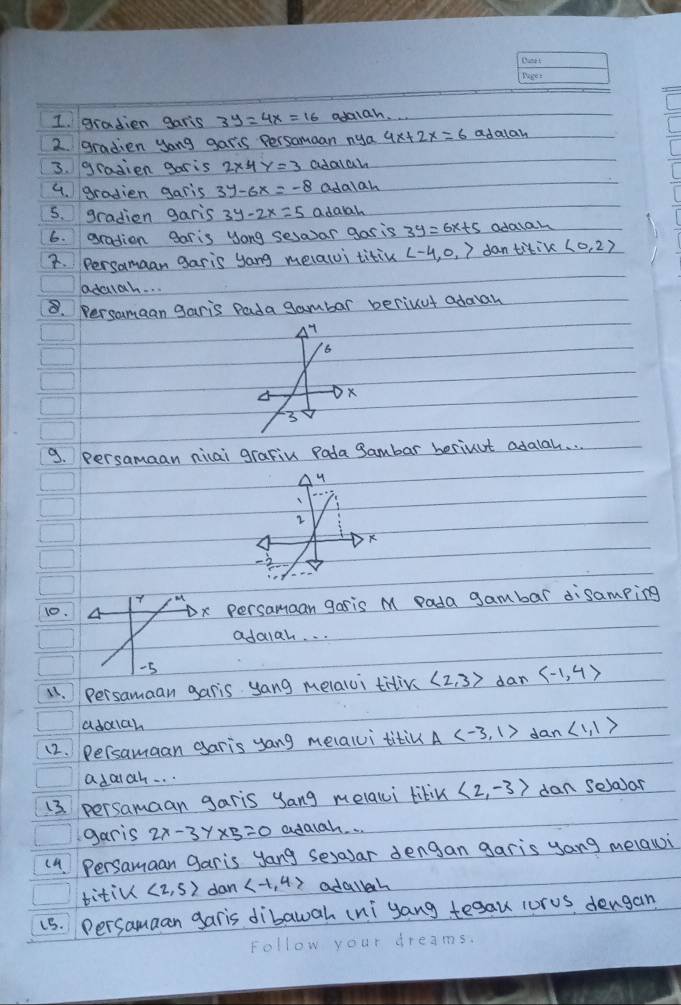 Date:
Page:
1. gradien garis 3y=4x=16 adalah...
2 gradien yang garis Persamaan nya 4x+2x=6 adalah
3. gradien garis 2x4y=3 adalah
4. gradien garis 3y-6x=-8 adalah
5. gradien garis 3y-2x=5 adalah
6. gradien garis yang sejajar garis 3y=6x+5 adalah
7. Persamaan garis yang melalui titik <-4,0,> dan titik <0,2>
adalah...
8. Persamaan garis Pada gambar berikut adalah
y
6
x
-3
9. Persamaan nilai grafik Pada gambar berikut adalah...
y
1
2
x
-2
10. y M x Persamaan garis M Pada gambar disamping
adalah...
-5
11. Persamaan garis yang melalui titik <2,3> dan <-1,4>
adalah
12. Persamaan garis yang melalui titik A <-3,1> dan <1,1>
adalah...
13 persamaan garis yang melalui titik <2,-3> dan sejajar
garis 2x-3yx5=0 adalah...
14 Persamaan garis yang sejajar dengan garis yang melalui
titik <2,5> dan <-1,4> adalah
15. Persamaan garis dibawah ini yang tegak lurus dengan
Follow your dreams.